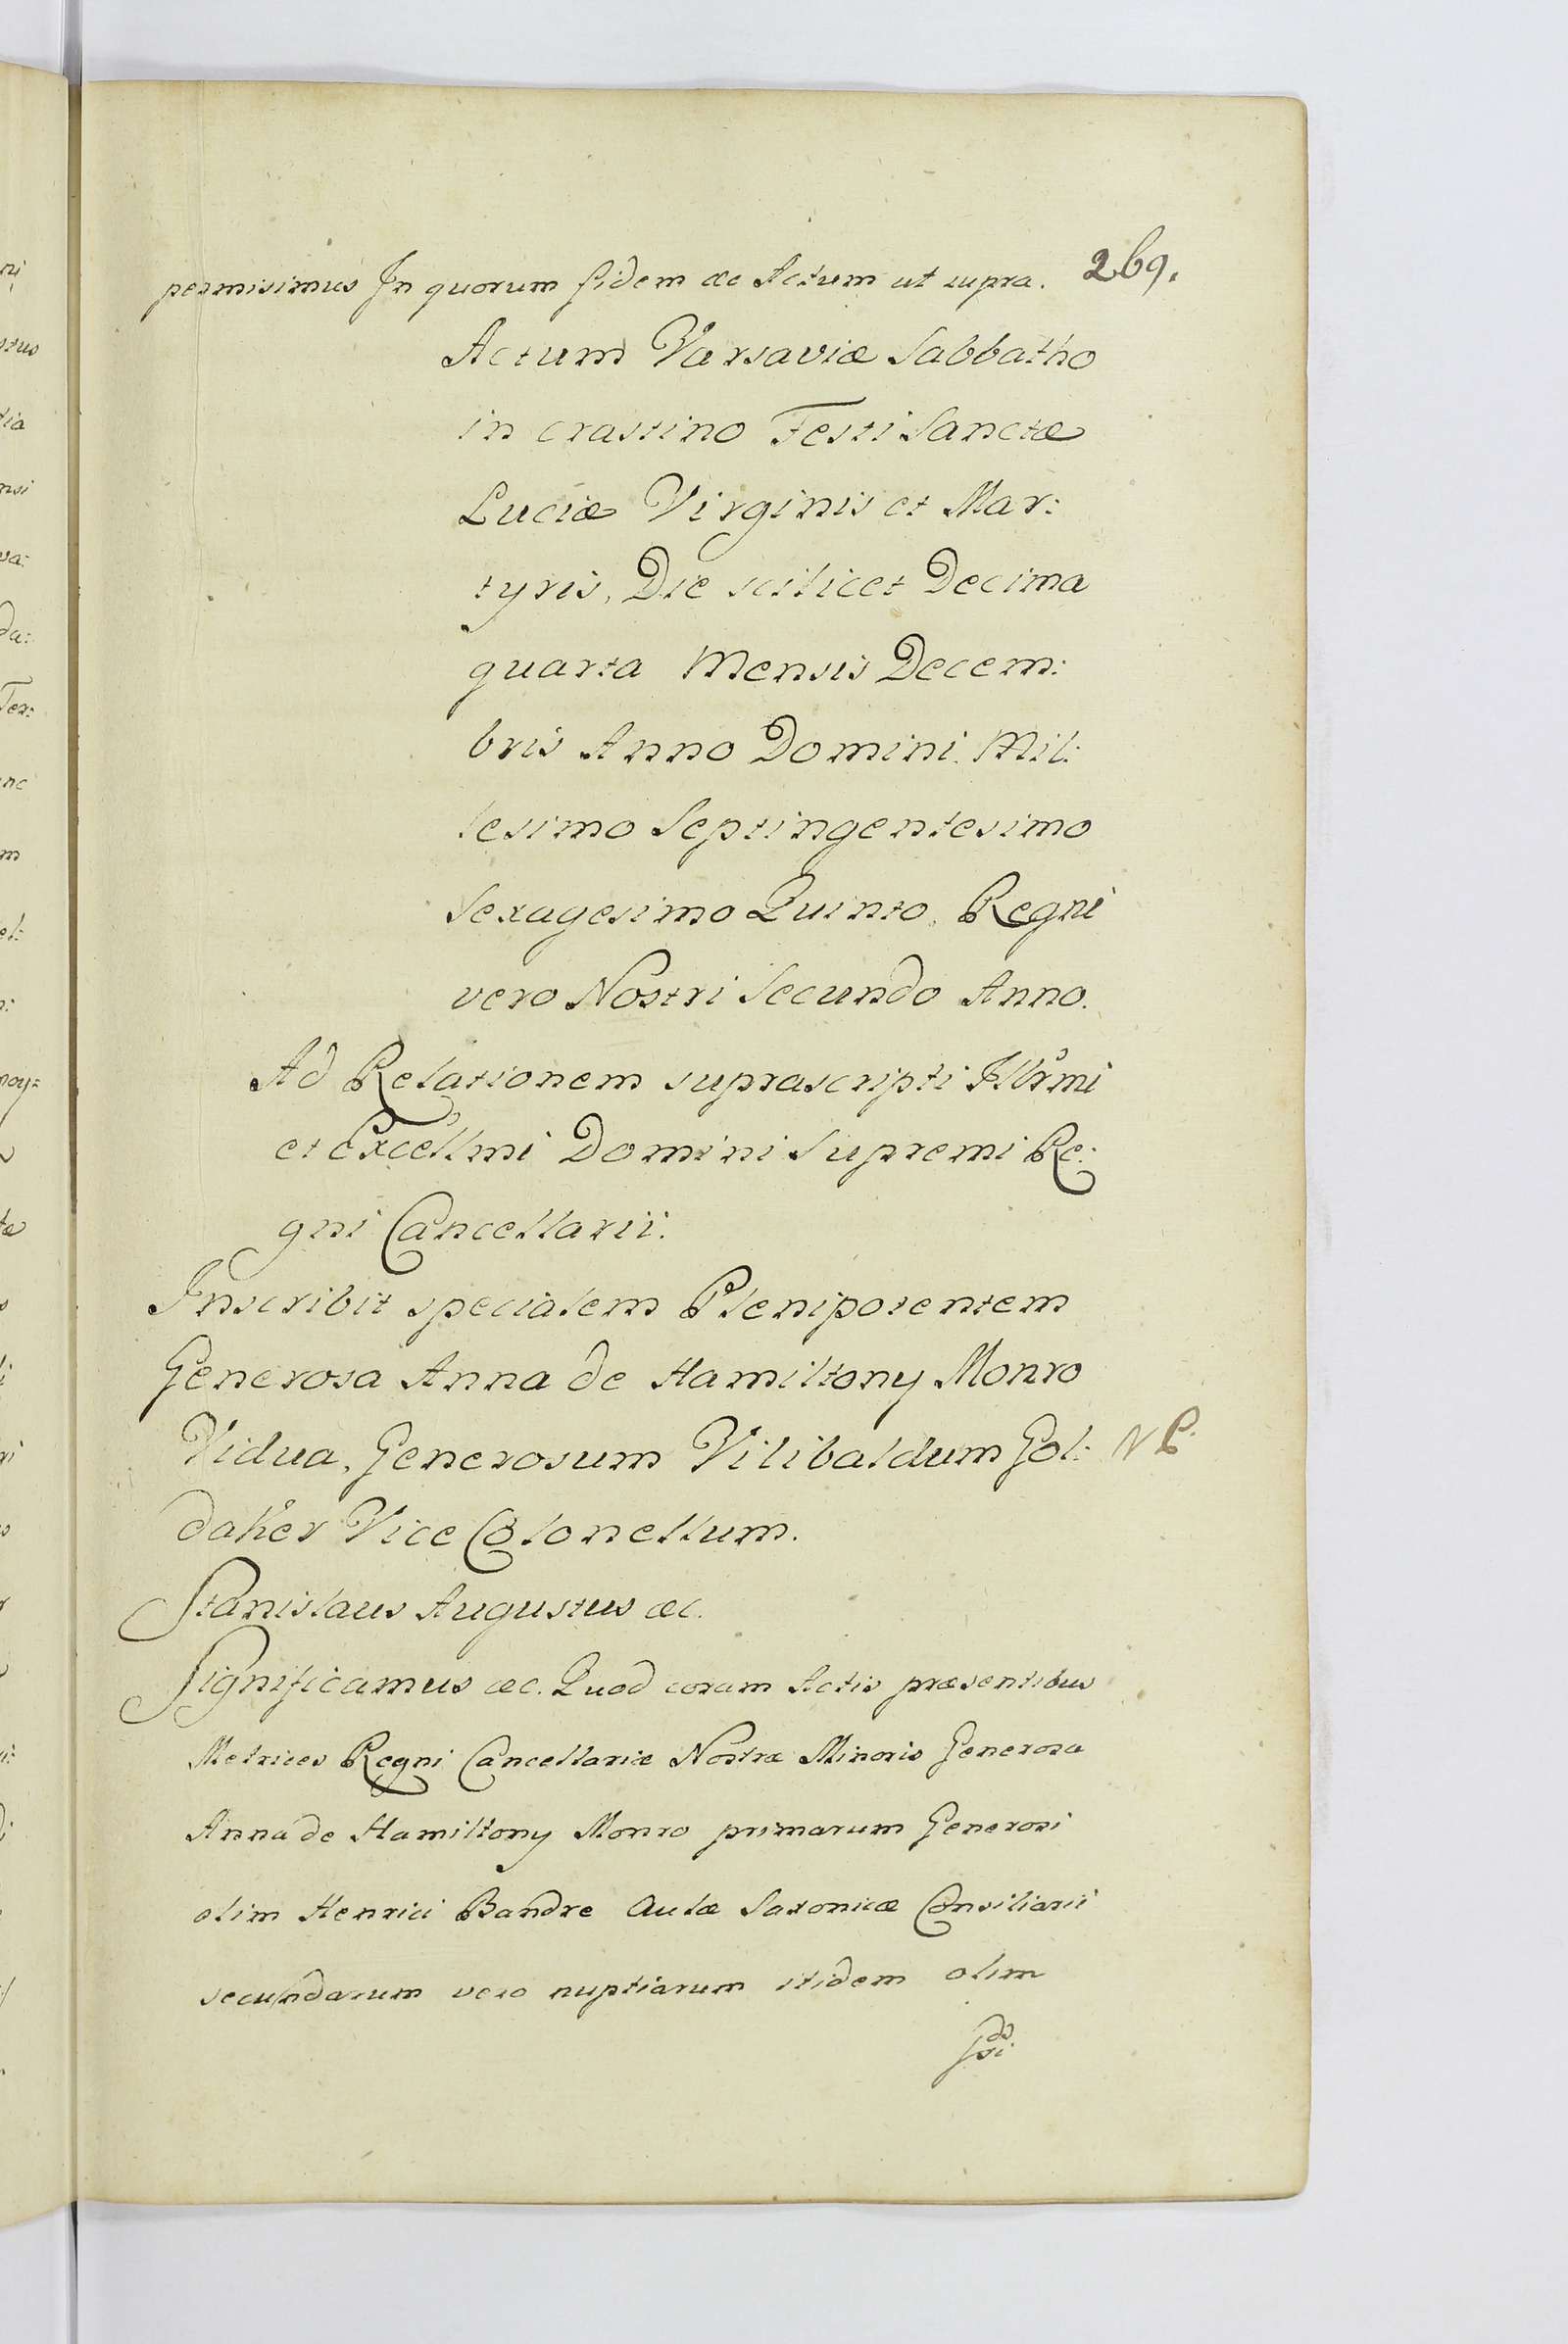 269.
permisimus In quorum fidem &c Actum ut supra.
Actum Varsaviæ Sabbatho
in crastino Festi Sanctæ
Luciæ Virginis et Mar:
tyris, Die scilicet Decima
quarta Mensis Decem:
bris Anno Domini Mil:
lesimo Septingentesimo
Sexagesimo Quinto, Regni
vero Nostri Secundo Anno.
Ad Relationem suprascripti Illrmi
et Excellmi Domini Supremi Re:
gni Cancellarii.
Inscribit specialem Plenipotentem
Generosa Anna de Hamiltony Monro
Vidua, Generosum Vilibaldum Gol: NP.
daker Vice Colonellum.
Stanislaus Augustus &c.
Significamus &c. Quod coram Actis præsentibus
Metrices Regni Cancellariæ Nostræ Minoris Generosa
Anna de Hamiltony Monro primarum Generosi
olim Henrici Bandre Aulæ Saxonicæ Consiliarii
secundarum vero nuptiarum itidem olim